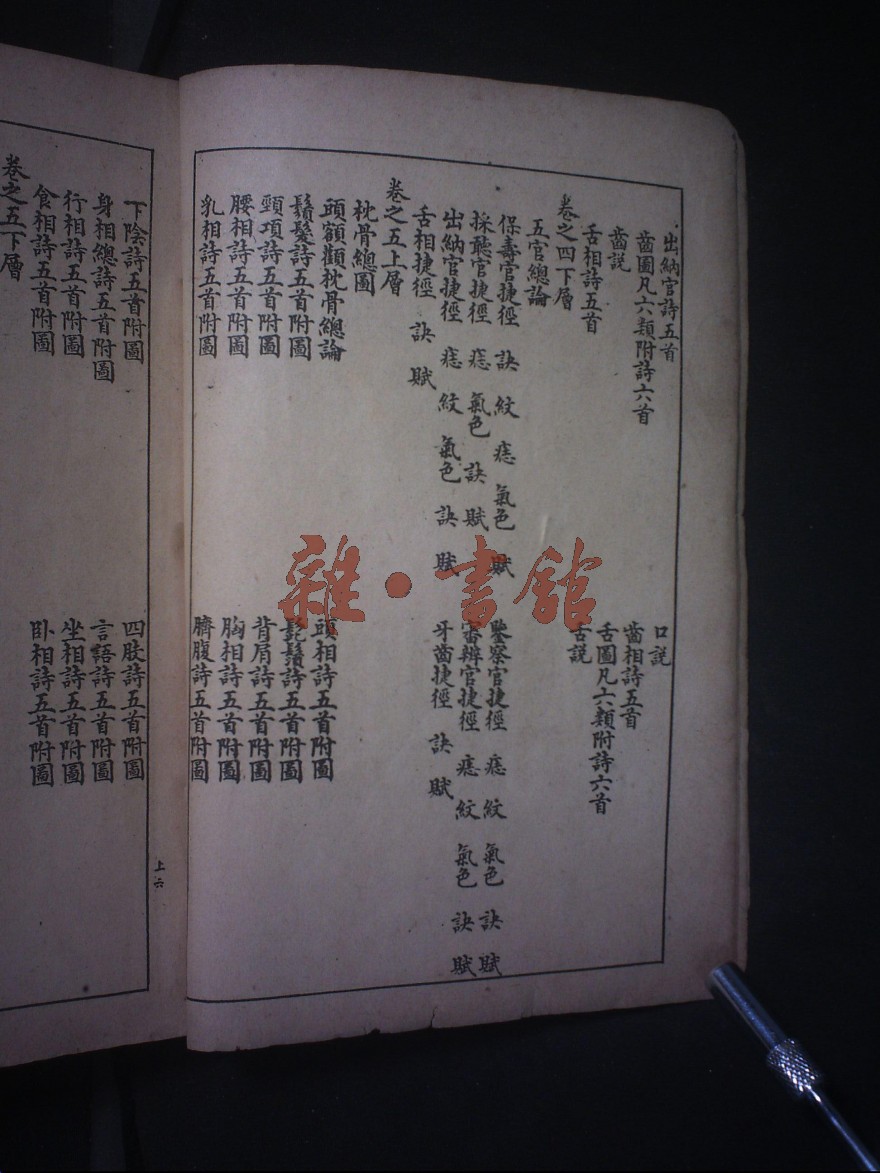 出納官詩五首
口説
齒圖凡六類附詩六首
齒相詩五首
齒説
舌圖凡六類附詩六首
舌相詩五首
舌説
卷之四下層
五官總論
保壽官捷徑 訣 紋 痣 氣色 賦
鑒察官捷徑 痣 紋 氣色 訣 賦
採聽官捷徑 痣 氣色 訣 賦
審辨官捷徑 痣 紋 氣色 訣 賦
出納官捷徑 痣 紋 氣色 訣 賦
牙齒捷徑 訣 賦
舌相捷徑 訣 賦
卷之五上層
枕骨總圖
頭額顴枕骨總論
頭相詩五首附圖
鬚髮詩五首附圖
髭鬚詩五首附圖
頸項詩五首附圖
背肩詩五首附圖
腰相詩五首附圖
胸相詩五首附圖
乳相詩五首附圖
臍腹詩五首附圖
下陰詩五首附圖
四肢詩五首附圖
身相總詩五首附圖
言語詩五首附圖
行相詩五首附圖
坐相詩五首附圖
食相詩五首附圖
卧相詩五首附圖
卷之五下層
上 六
雜·書館